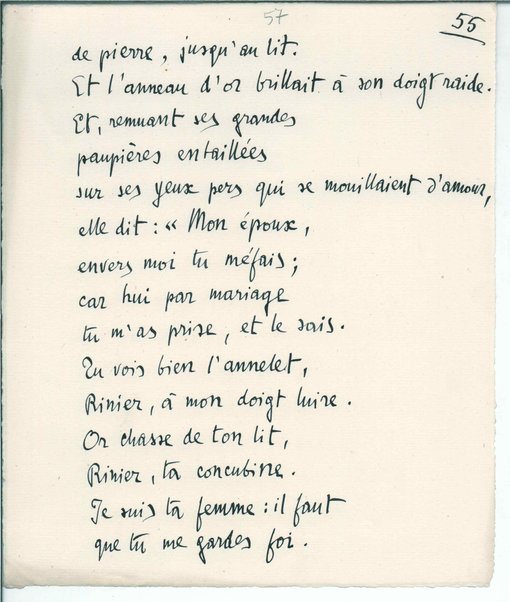 57
55
de pierre, jusqu'au lit.
Et l'anneau d'or brillait à son doigt raide.
Et, remuant ses grandes
paupières entaillées
sur ses yeux pers qui se mouillaient d'amour,
elle dit : « Mon époux,
envers moi tu méfais ;
car hui par mariage
tu m'as prise, et le sais.
Tu vois bien l'annelet,
Rinier, à mon doigt luire.
Or chasse de ton lit,
Rinier, ta concubine.
Je suis ta femme : il faut
que tu me gardes foi.